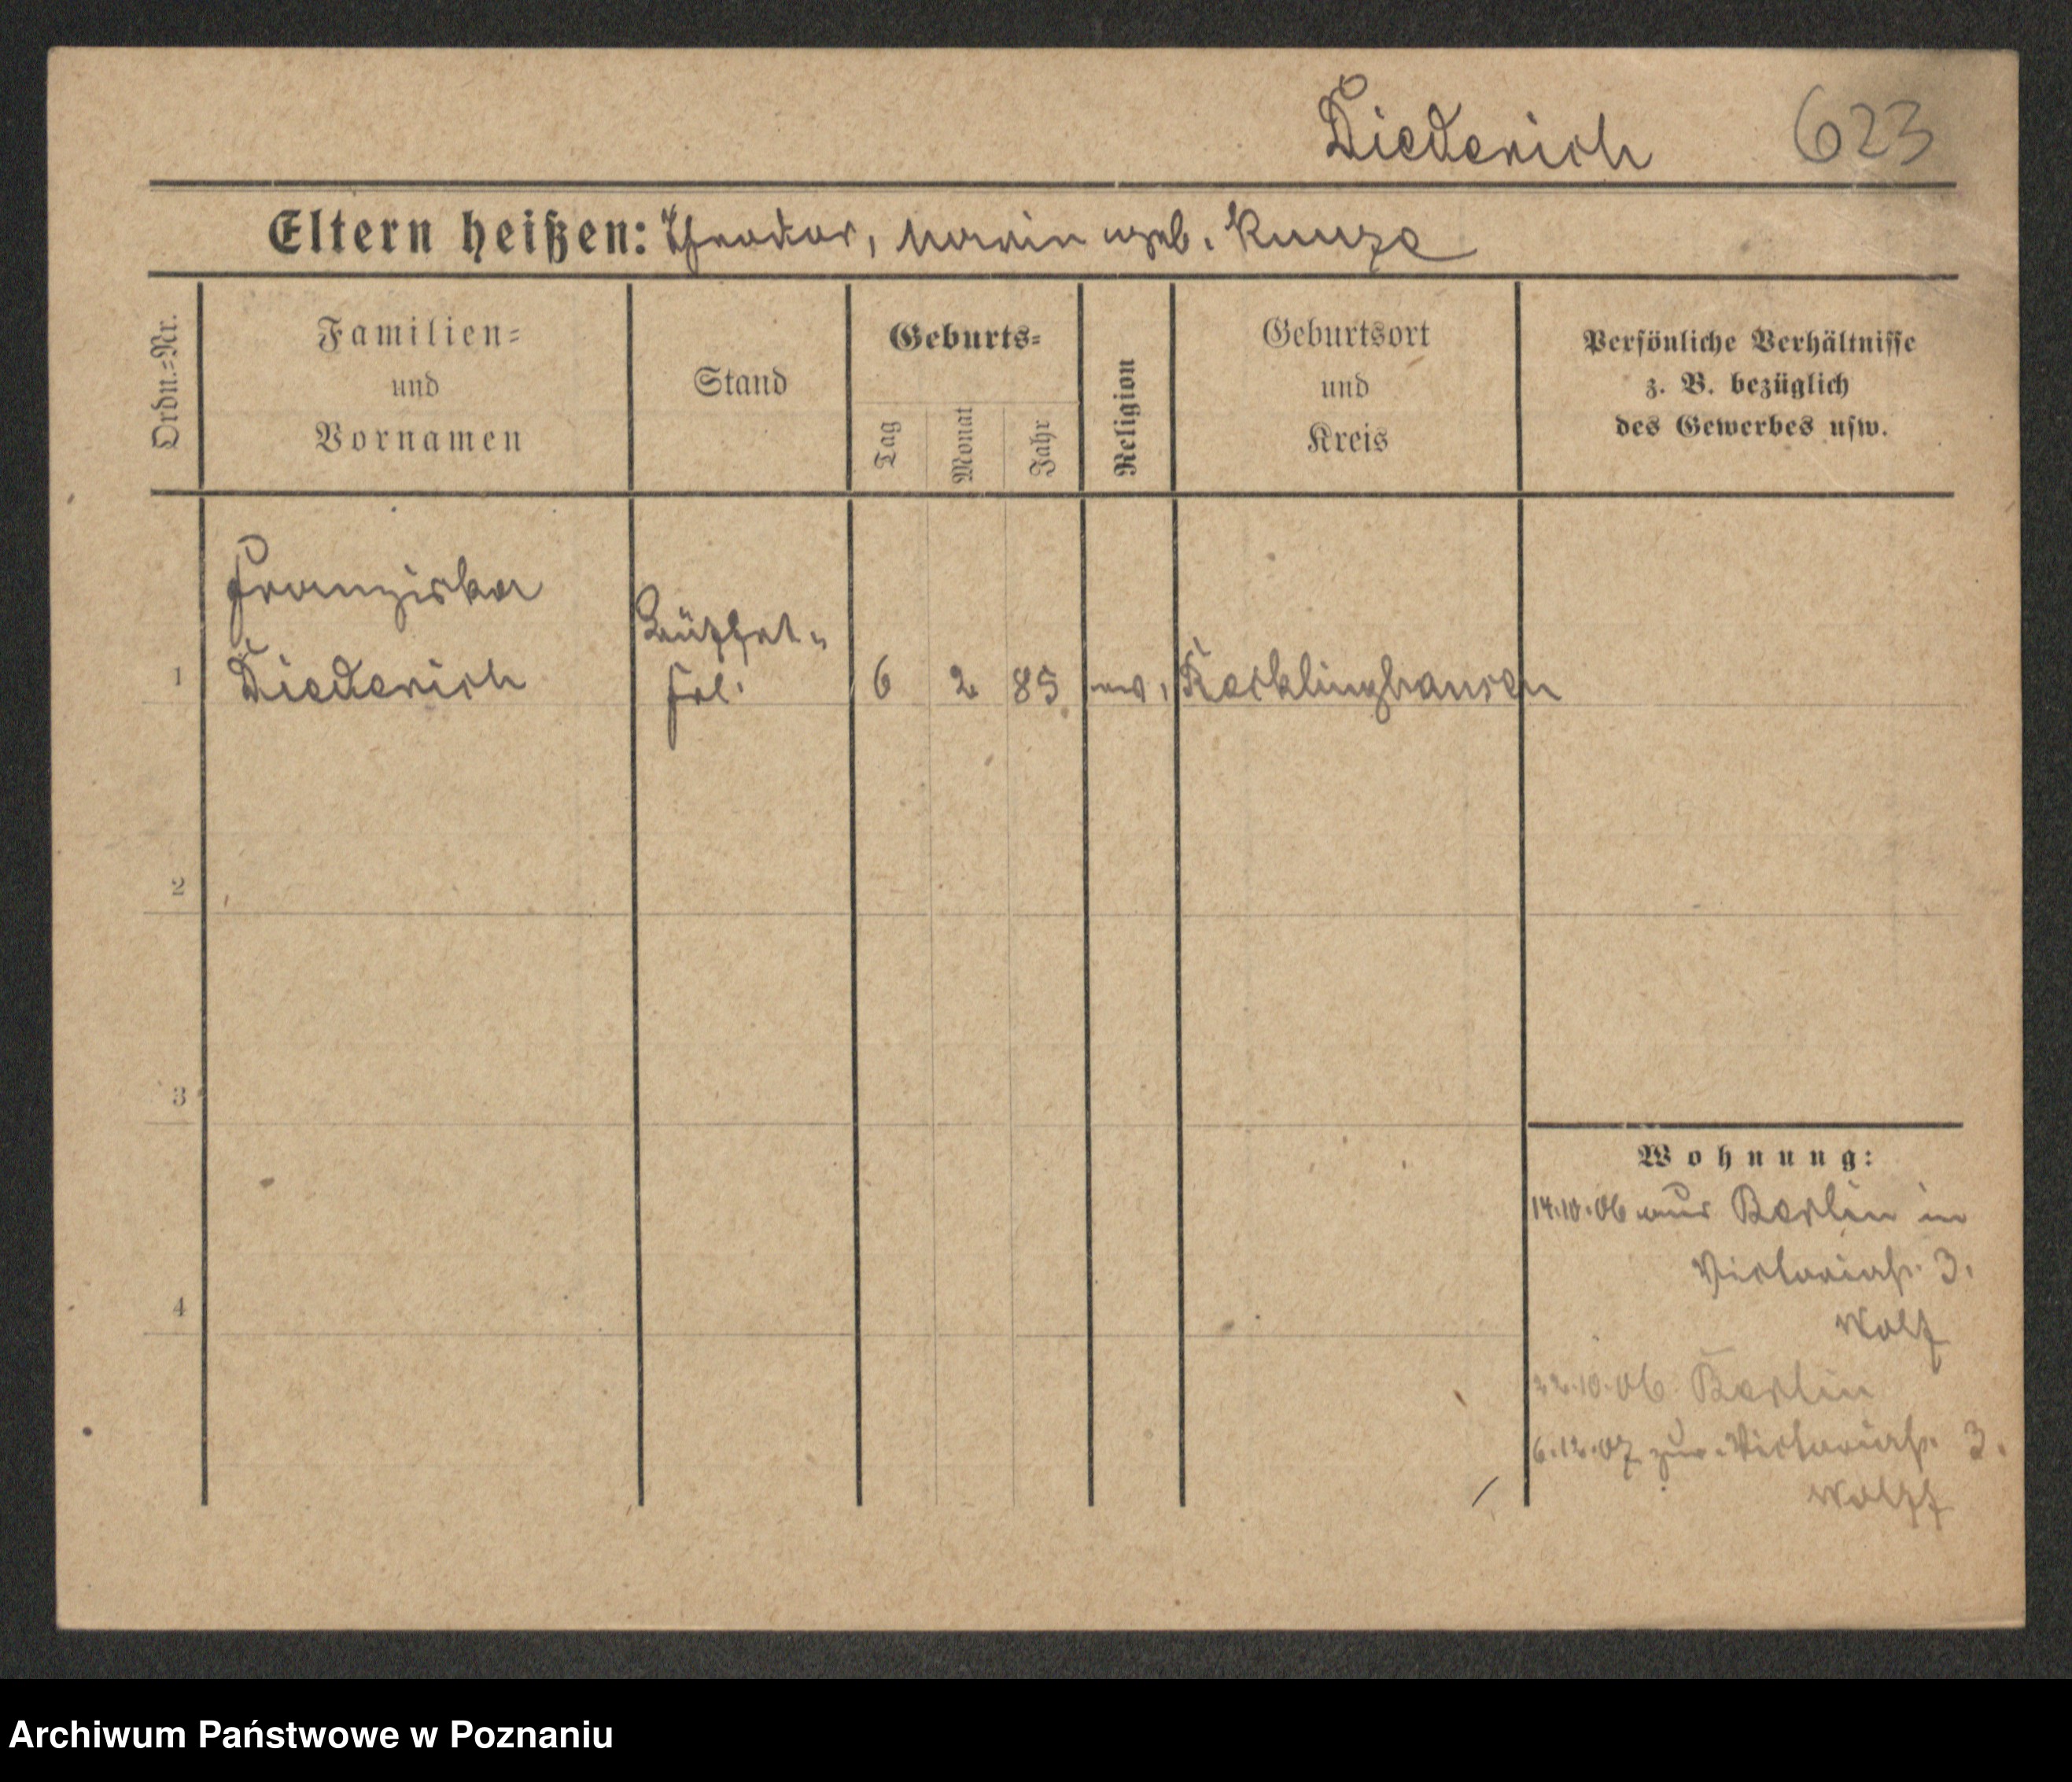 Diederich 623
Eltern heißen: Theodor, Maria geb. Kunze
Ordn.=Nr.
Familien=
und
Vornamen
Stand
Geburts=
Tag
Monat
Jahr
Religion
Geburtsort
und
Kreis
Persönliche Verhältnisse
z. B. bezüglich
des Gewerbes usw.
Franziska
Büffet-
1 Diederich frl. 6 2 85 ev. Recklinghausen
2
3
4
Wohnung:
14.10.06 aus Berlin in
Victoriastr. 3.
Wolf
22.10.06. Berlin
6.12.07 zur. Victoriastr. 3.
Wolff
Archiwum Państwowe w Poznaniu